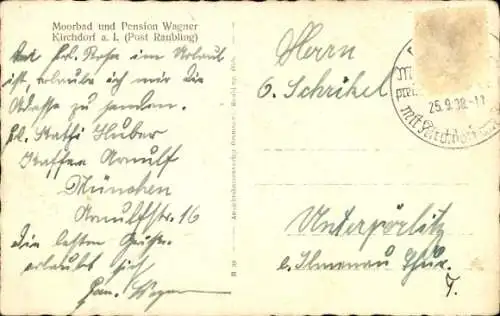 Moorbad und Pension Wagner
Kirchdorf a. I. (Post Raubling)
Frl. Rosa im Urlaub
ist, erlaube ich mir die
Adresse zu senden.
Frl. Kathi Huber
Arnulf
München
Arnulfstr. 16
Die besten Grüße
erlaubt sich
Fam. Wagner
Herrn
O. Schrikel
Unterpörlitz
b. Ilmenau Thür.
25.9.38
mit Kirchdorf